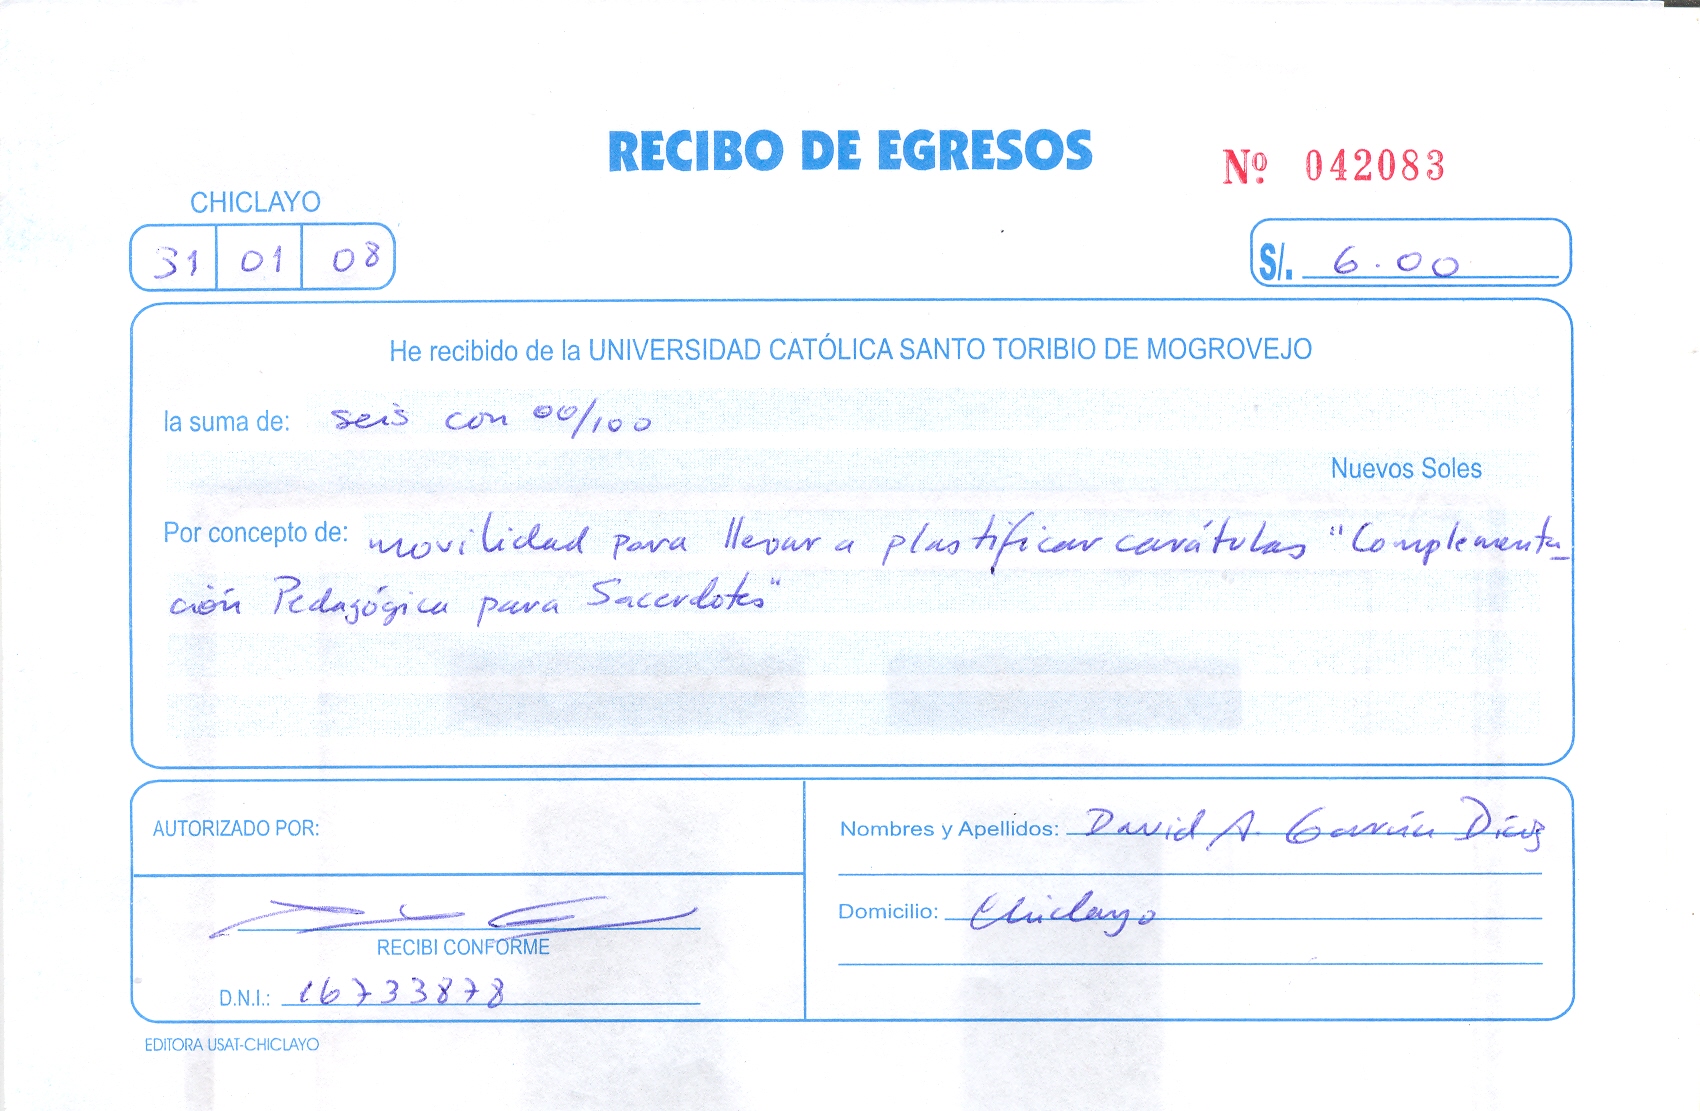 RECIBO DE EGRESOS
Nº 042083
CHICLAYO
31 01 08
S/. 6.00
He recibido de la UNIVERSIDAD CATÓLICA SANTO TORIBIO DE MOGROVEJO
la suma de: seis con 00/100
Nuevos Soles
Por concepto de: movilidad para llevar a plastificar carátulas "Complementa_
ción Pedagógica para Sacerdotes"
AUTORIZADO POR:
Nombres y Apellidos: David A. García Díaz
Domicilio: Chiclayo
RECIBI CONFORME
D.N.I.: 16733878
EDITORA USAT-CHICLAYO